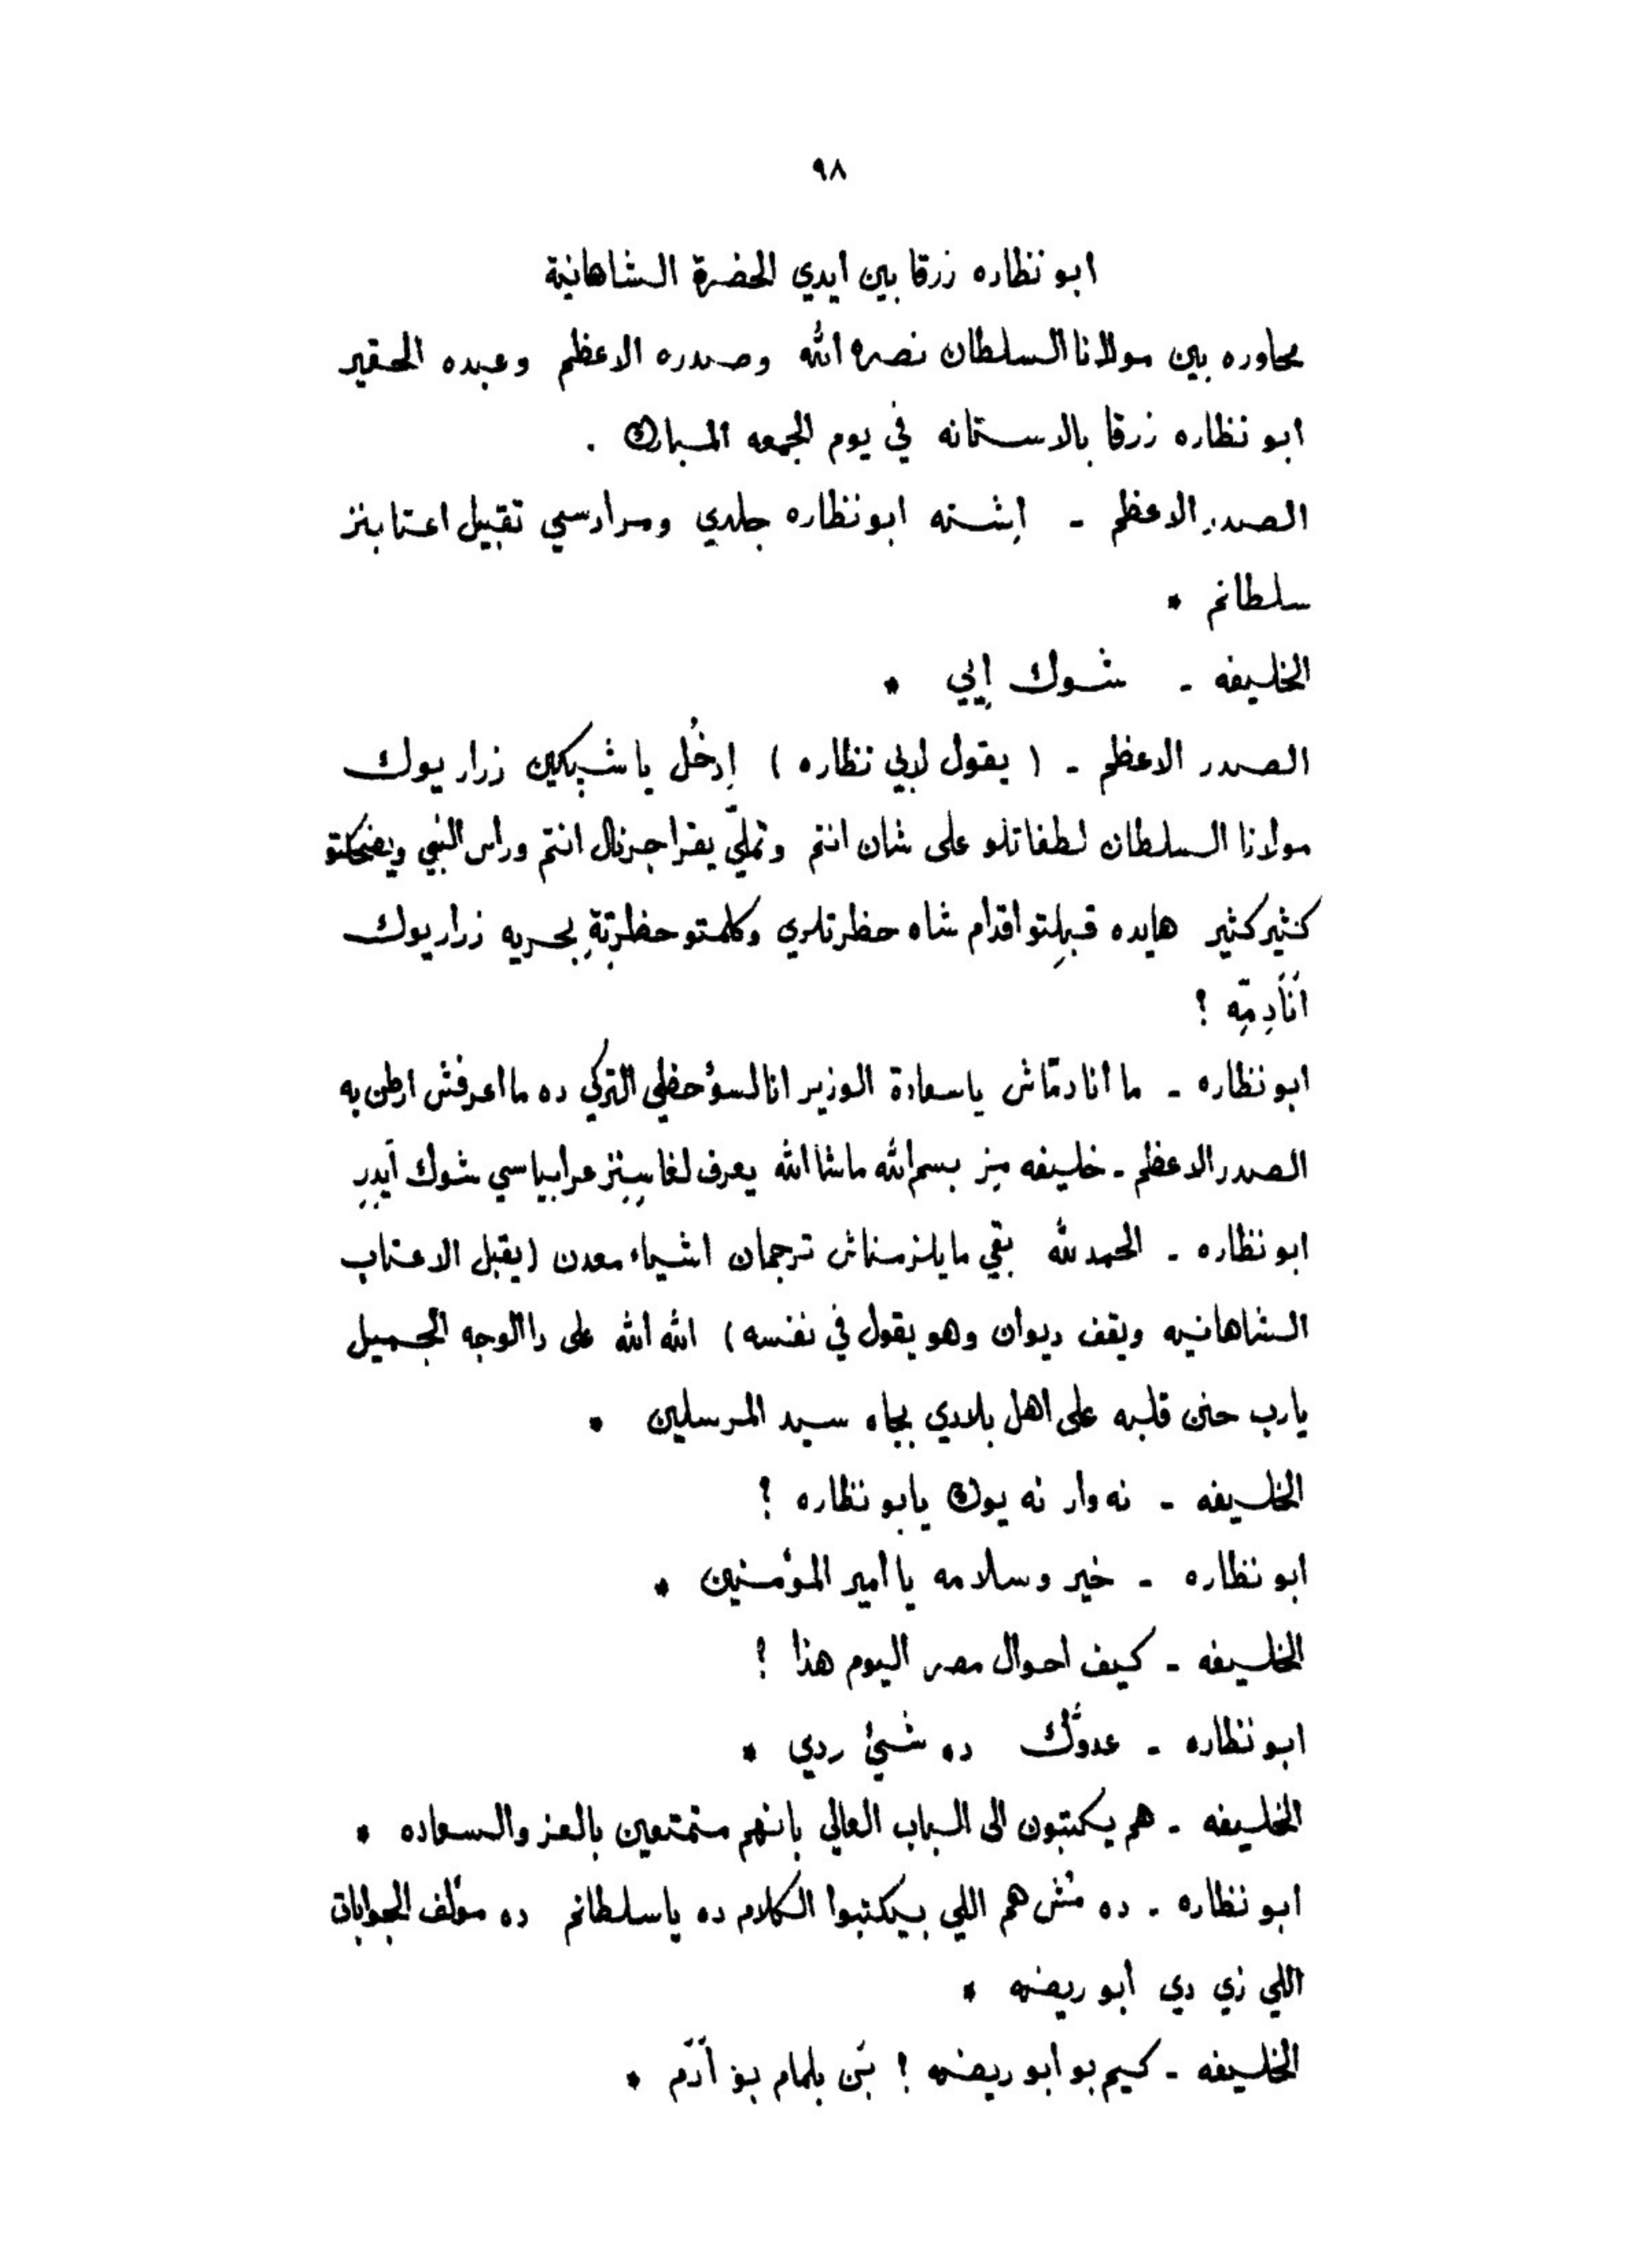 ٩٨
ابو نظاره زرقا بين ايدي الحضرة الشاهانية
محاوره بين مولانا السلطان نصره الله وصدره الاعظم وعبده الحقير
ابو نظاره زرقا بالاستانه في يوم الجمعه المبارك .
الصدر الاعظم - اِشته ابو نظاره جلدي ومرادسي تقبيل اعتابنز
سلطانم *
الخليفه - شوك إيي *
الصدر الاعظم - ( يقول لابي نظاره ) اِدخُل يا شبكين زرار يوك
مولانا السلطان لطفاتلو على شان انتم وتملّي يقرا جرنال انتم وراس النبي ويضحكتو
كثير كثير هايده قبلِتو اقدام شاه حظرتلري وكلمتو حظرتةِ بحريه زرار يوك
اَنَادِمّه ؟
ابو نظاره - ما انا دمّاش ياسعادة الوزير انا لسؤ حظي التركي ده ما اعرفش ارطن به
الصدر الاعظم - خليفه مِز بسم الله ماشا الله يعرف لغاسِنِز عرابياسي شوك اَيدِرِ
ابو نظاره - الحمد لله بقي ما يلزمناش ترجمان اشياء معدن (يقبل الاعتاب
الشاهانيه ويقف ديوان وهو يقول في نفسه) الله الله على دا الوجه الجميل
يارب حنن قلبه على اهل بلادي بجاه سيد المرسلين *
الخليفه - نه وار نه يوك يابو نظاره ؟
ابو نظاره - خير وسلامه يا امير المؤمنين *
الخليفه - كيف احوال مصر اليوم هذا ؟
ابو نظاره - عدوّك ده شيئ ردي *
الخليفه - هم يكتبون الى الباب العالي بانهم متمتعين بالعز والسعاده *
ابو نظاره - ده مُش هم اللي بيكتبوا الكلام ده ياسلطانم ده مؤلف الجوابات
اللي زي دي أبو ريضه *
الخليفه - كيم بو ابو ريضه ! بَن بلمام بو اَدَم *